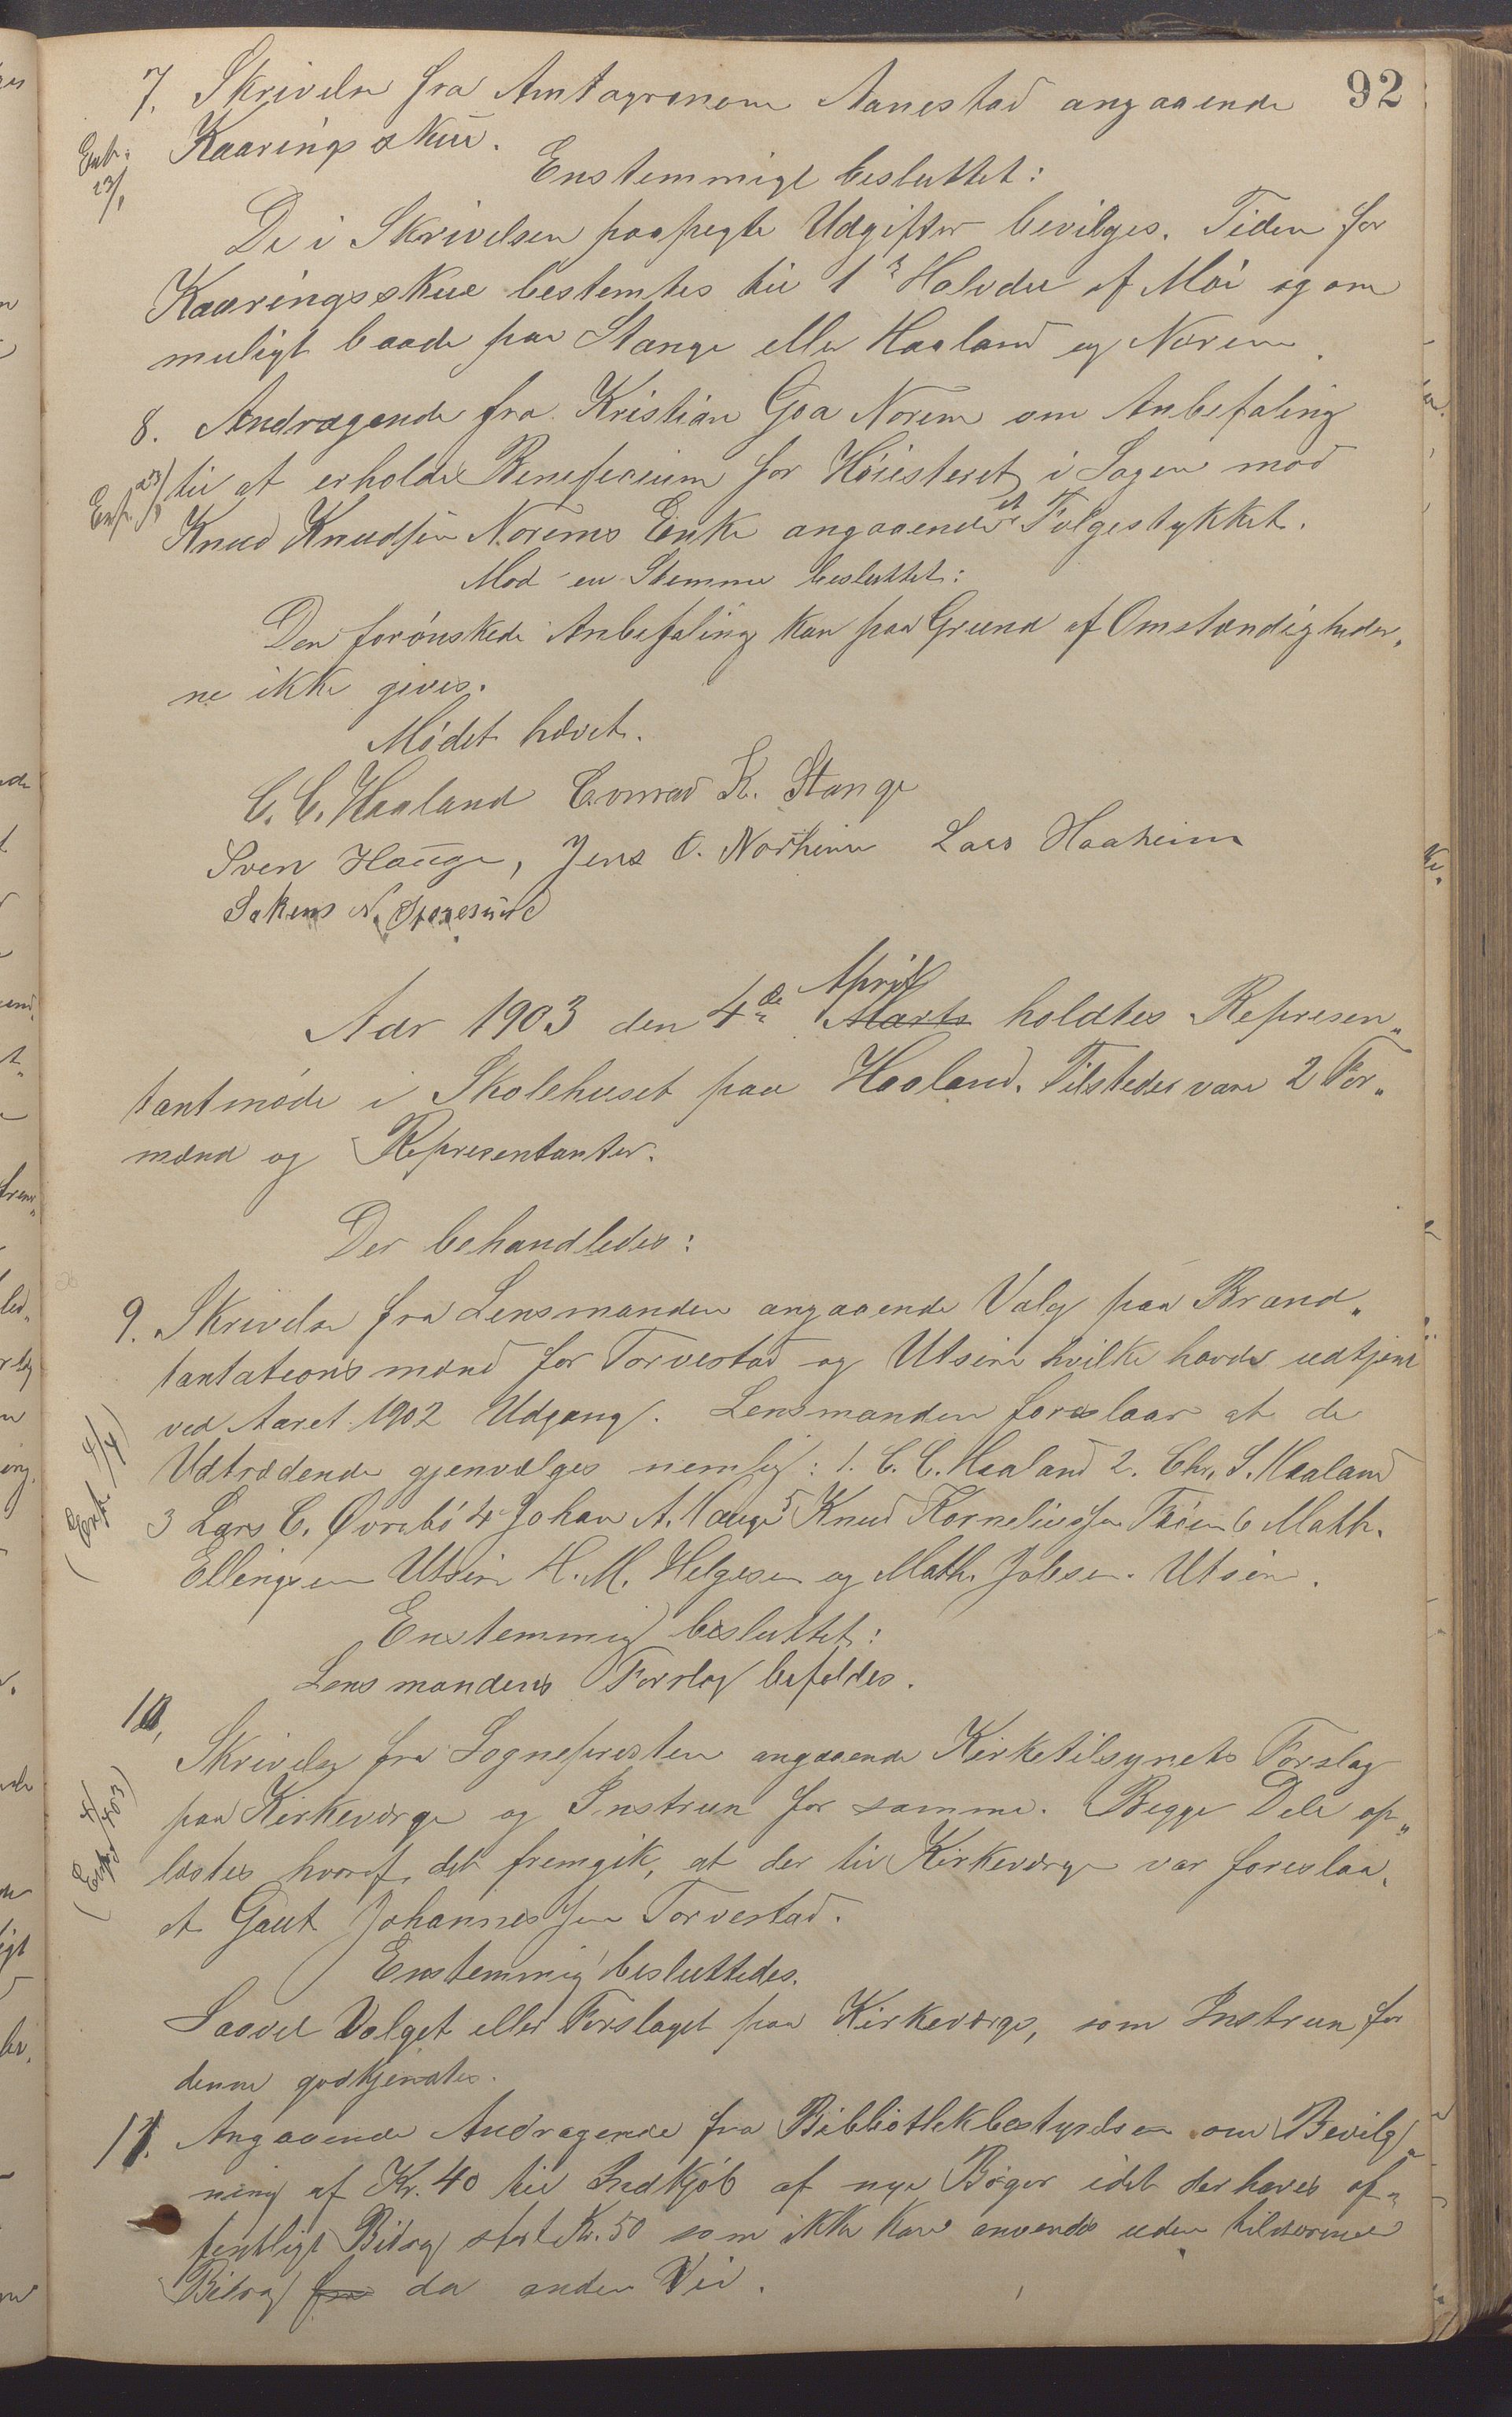 92
7. Skrivelse fra Amtagronom Aanestad angaaende
Kaaringsskue.
Exp. 23/1
Enstemmigt besluttet:
De i Skrivelsen paapegte Udgifter bevilges. Tiden for
Kaaringsskue bestemtes til 1ste Halvdel af Mai og om
muligt baade paa Stange eller Haaland og Norem.
8. Andragende fra Kristian Goa Norem om Anbefaling
til at erholde Beneficium for Høiesteret i Sagen mod
Exp. 23/1
Knud Knudsen Norems Enke angaaende et Følgestykket.
Mod en Stemme besluttet:
Den forønskede Anbefaling kan paa Grund af Omstændigheder„
ne ikke gives.
Mødet hævet.
C. C. Haaland Conrad K. Stange
Sven Hauge, Jens O. Norheim Lars Haaheim
Sakens N. Storesund
April
Aar 1903 den 4de Marts holdtes Represen„
tantmøde i Skolehuset paa Haaland. Tilstede vare 2 For„
mænd og Representanter.
Der behandledes:
9. Skrivelse fra Lensmanden angaaende Valg paa Brand„
tantationsmænd for Torvestad og Utsire hvilke havde udtjent
ved Aaret 1902 Udgang. Lensmanden foreslaar at de
(Exp. 4/4)
Udtrædende gjenvælges nemlig: 1. C. C. Haaland 2. Chr. S. Haaland
3 Lars C. Øvrebø 4 Johan A. Hauge 5 Knud Korneliussen 6 Math.
Ellingsen Utsire H. M. Helgesen og Math. Jobsen. Utsire.
Enstemmig besluttet:
Lensmandens Forslag bifaldes.
10,
Skrivelse fra Sognepresten angaaende Kirketilsynets Forslag
paa Kirkeværge og Instrux for samme. Begge Dele op„
(Exped 4/4 03)
læstes hvoraf det fremgik, at der til Kirkeværge var foreslaa„
et Gaut Johannessen Torvestad.
Enstemmig besluttedes.
Saavel Valget eller Forslaget paa Kirkeværge, som Instrux for
denne godkjendtes.
11. Angaaende Andragende fra Bibliothekbestyrelsen om Bevilg„
ning af Kr. 40 til Indkjøb af nye Bøger idet der haves of„
fentligt Bidrag stort Kr. 50 som ikke kan anvendes uden tilsvarende
Bidrag fra da anden Vei.